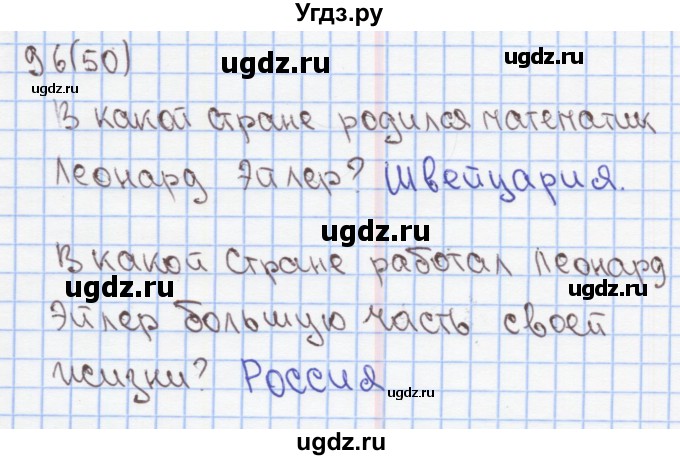 Угдз.ру
96(50)
ugdz.ru
ugdz.ru
ugdz.ru
В какой стране родился математик
Леонард Эйлер? Швейцария.
ugdz.ru
ugdz.ru
В какой стране работал Леонард
ugdz.ru
ugdz.ru
Эйлер большую часть своей
жизни? Россия
ugdz.ru
ugdz.ru